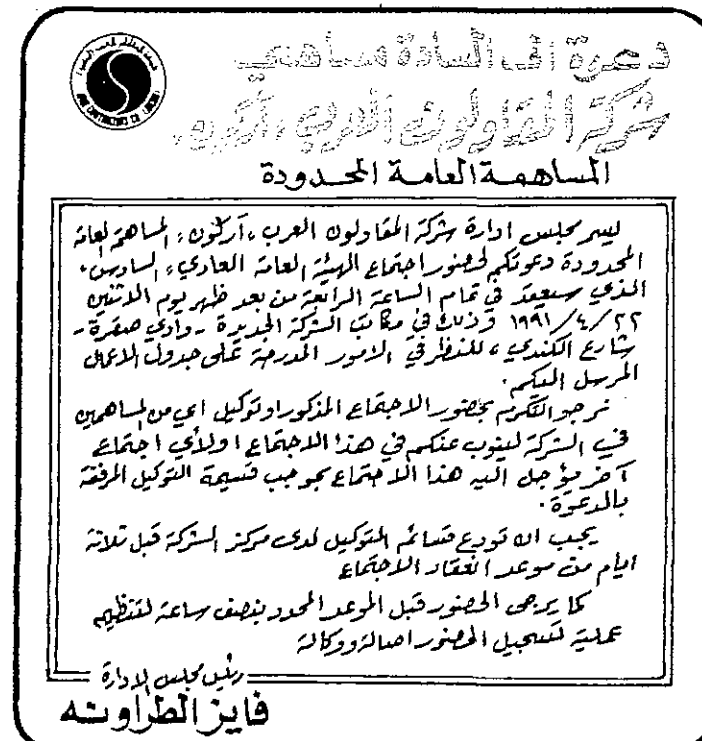 دعوة الى السادة مساهمي
شركة المقاولون العرب "آركون"
المساهمة العامة المحدودة
يسر مجلس ادارة شركة المقاولون العرب "آركون" المساهمة العامة
المحدودة دعوتكم لحضور اجتماع الهيئة العامة العادي "السادس"
الذي سيعقد في تمام الساعة الرابعة من بعد ظهر يوم الاثنين
٢٢/٤/١٩٩١ وذلك في مكاتب الشركة الجديدة - وادي صقرة -
شارع الكندي، للنظر في الامور المدرجة على جدول الاعمال
المرسل اليكم.
نرجو التكرم بحضور الاجتماع المذكور او توكيل اي من المساهمين
في الشركة لينوب عنكم في هذا الاجتماع او لأي اجتماع
آخر يؤجل اليه هذا الاجتماع بموجب قسيمة التوكيل المرفقة
بالدعوة.
يجب ان تودع قسائم التوكيل لدى مركز الشركة قبل ثلاثة
ايام من موعد انعقاد الاجتماع
كما يرجى الحضور قبل الموعد المحدد بنصف ساعة لتنظيم
عملية تسجيل الحضور اصالة ووكالة
رئيس مجلس الادارة
فايز الطراونه